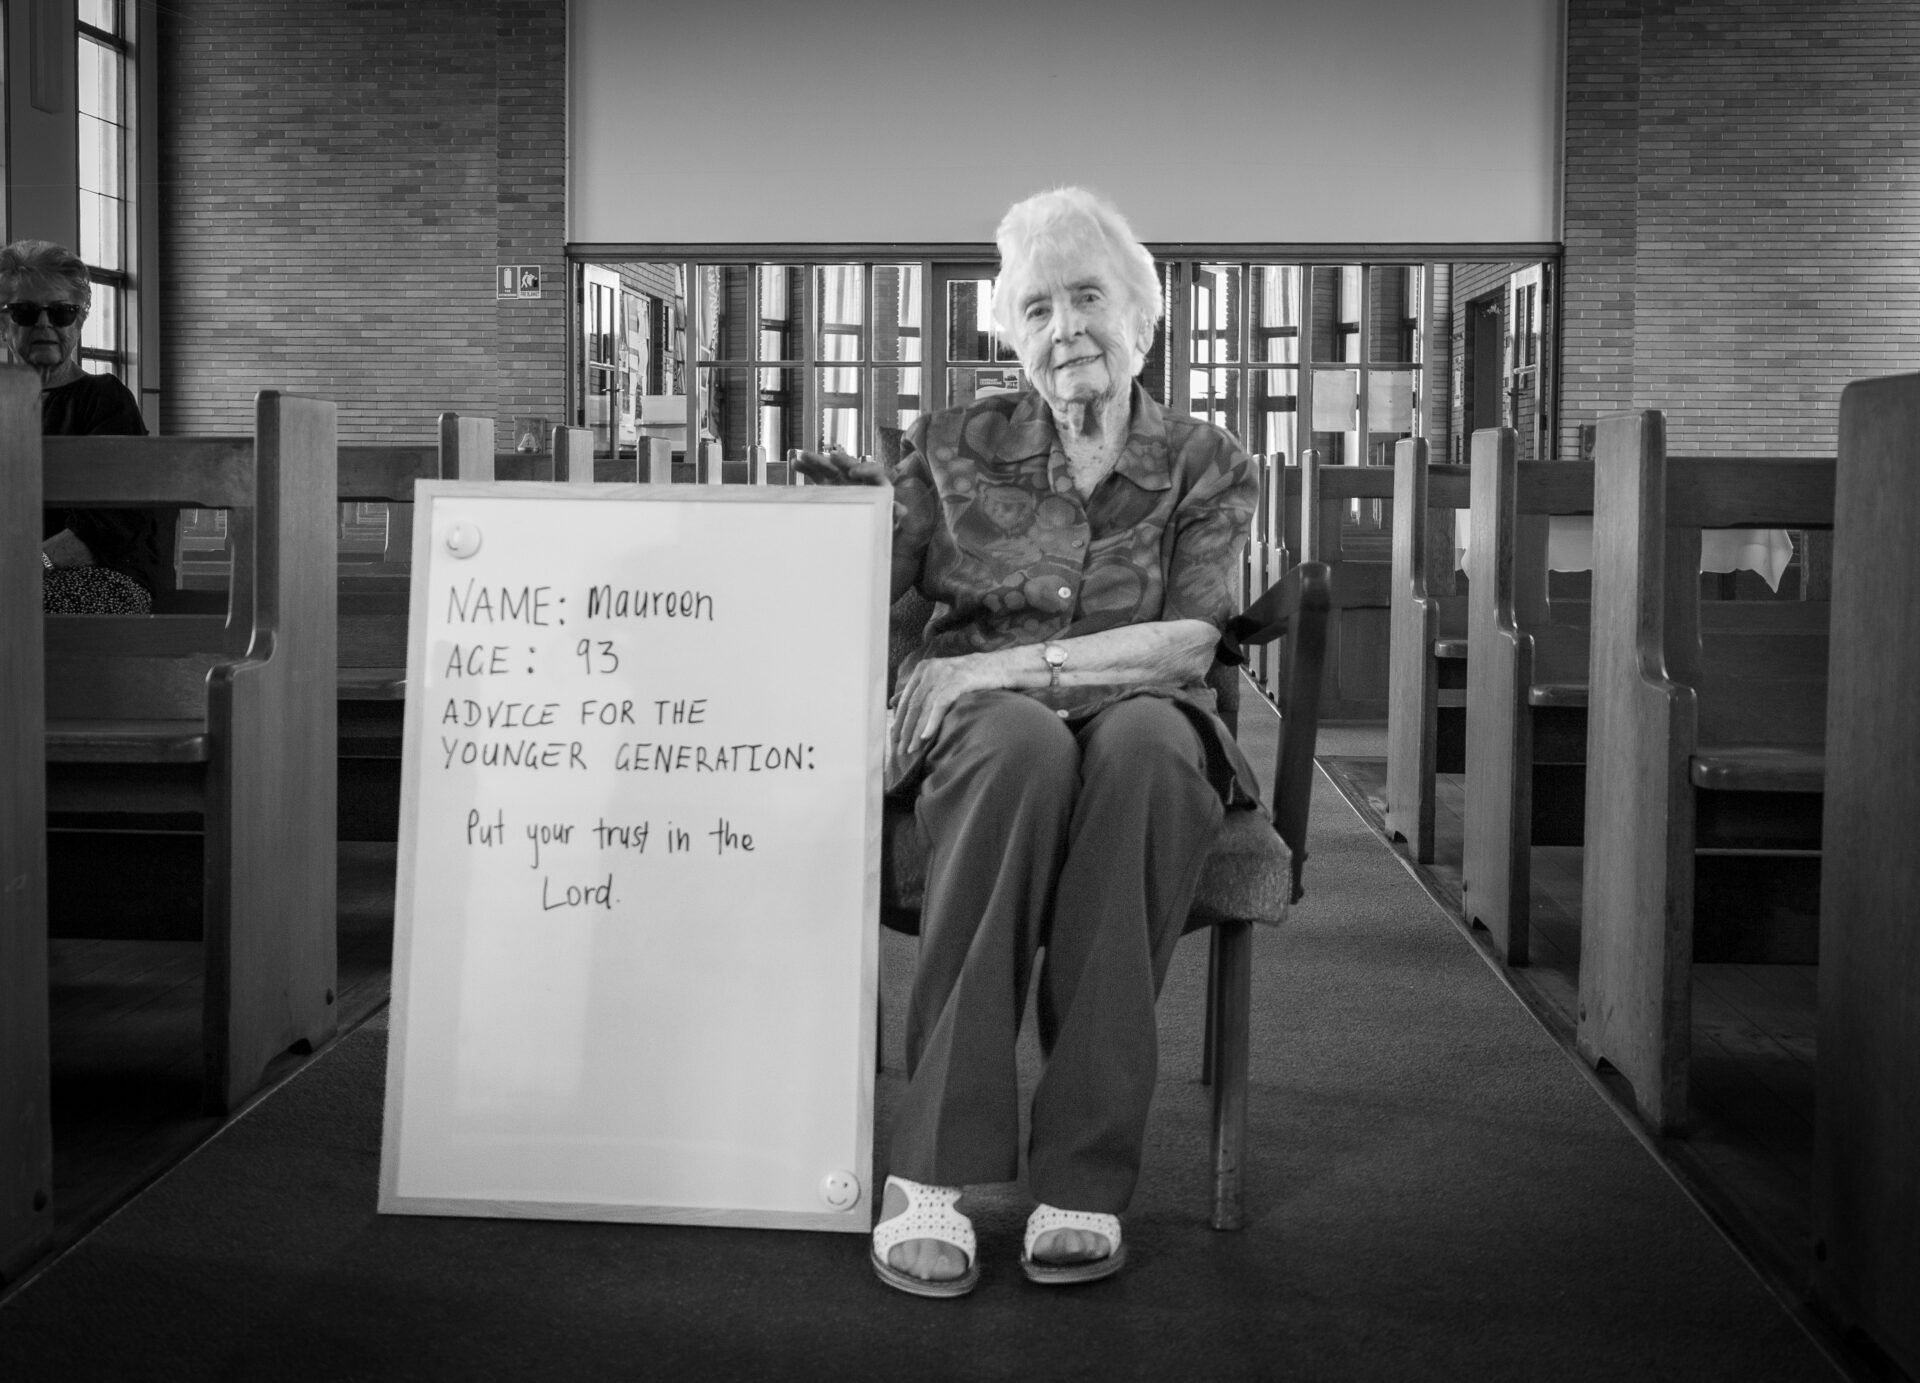 NAME: Maureen
AGE: 93
ADVICE FOR THE
YOUNGER GENERATION:
Put your trust in the
Lord.